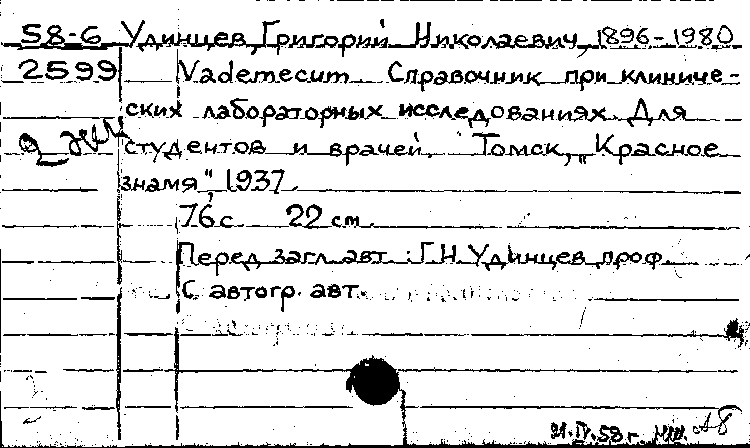 58-6 Удинцев, Григорий Николаевич, 1896-1980
2599 Vademecum. Справочник при клиниче-
ских лабораторных исследованиях. Для
2 экз
студентов и врачей. Томск, „Красное
знамя", 1937.
76 с. 22 см.
Перед загл. авт.: Г.Н. Удинцев, проф.
С автогр. авт.
21.IV.58 г. А8